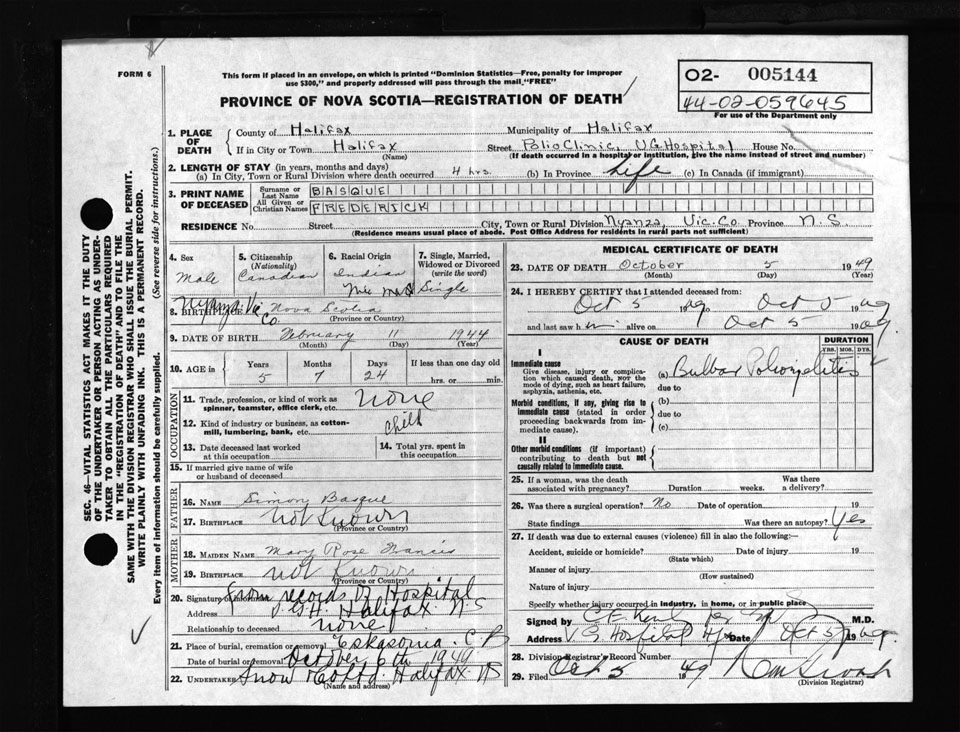 FORM 6
This form if placed in an envelope, on which is printed "Dominion Statistics—Free, penalty for improper
use $300," and properly addressed will pass through the mail "FREE"
PROVINCE OF NOVA SCOTIA—REGISTRATION OF DEATH
O2- 005144
44-02-059645
For use of the Department only
SEC. 46—VITAL STATISTICS ACT MAKES IT THE DUTY
OF THE UNDERTAKER OR PERSON ACTING AS UNDER-
TAKER TO OBTAIN ALL THE PARTICULARS REQUIRED
IN THE "REGISTRATION OF DEATH" AND TO FILE THE
SAME WITH THE DIVISION REGISTRAR WHO SHALL ISSUE THE BURIAL PERMIT.
WRITE PLAINLY WITH UNFADING INK. THIS IS A PERMANENT RECORD.
Every item of information should be carefully supplied. (See reverse side for instructions.)
1. PLACE OF DEATH
County of Halifax Municipality of Halifax
If in City or Town Halifax Street Polio Clinic, V.G. Hospital House No.
(Name) (If death occurred in a hospital or institution, give the name instead of street and number)
2. LENGTH OF STAY (in years, months and days)
(a) In City, Town or Rural Division where death occurred 4 hrs. (b) In Province Life (c) In Canada (if immigrant)
3. PRINT NAME OF DECEASED
Surname or Last Name BASQUE
All Given or Christian Names FREDERICK
RESIDENCE No. Street City, Town or Rural Division Nyanza, Vic. Co. Province N.S.
(Residence means usual place of abode. Post Office Address for residents in rural parts not sufficient)
4. Sex Male
5. Citizenship (Nationality) Canadian
6. Racial Origin Indian
7. Single, Married, Widowed or Divorced (write the word) Single
8. BIRTHPLACE Nyanza Vic Co Nova Scotia
(Province or Country)
9. DATE OF BIRTH February 11 1944
(Month) (Day) (Year)
10. AGE in Years 5 Months 7 Days 24 If less than one day old
hrs. or min.
OCCUPATION
11. Trade, profession, or kind of work as
spinner, teamster, office clerk, etc. none
12. Kind of industry or business, as cotton-
mill, lumbering, bank, etc. child
13. Date deceased last worked
at this occupation
14. Total yrs. spent in
this occupation
15. If married give name of wife
or husband of deceased
FATHER
16. NAME Simon Basque
17. BIRTHPLACE not Known
(Province or Country)
MOTHER
18. MAIDEN NAME Mary Rose Francis
19. BIRTHPLACE not Known
(Province or Country)
20. Signature of informant from records of Hospital
Address V.G.H. Halifax N.S
Relationship to deceased none
21. Place of burial, cremation or removal Eskasonia C.B
Date of burial or removal October 6th 1949
22. UNDERTAKER Snow Co Ltd. Halifax NS
(Name and address)
MEDICAL CERTIFICATE OF DEATH
23. DATE OF DEATH October 5 1949
(Month) (Day) (Year)
24. I HEREBY CERTIFY that I attended deceased from:
Oct 5 1949 to Oct 5 1949
and last saw him alive on Oct 5 1949.
CAUSE OF DEATH
DURATION
YRS. MOS. DYS.
I
Immediate cause
Give disease, injury or complica-
tion which caused death, not the
mode of dying, such as heart failure,
asphyxia, asthenia, etc.
(a) Bulbar Poliomyelitis
due to
Morbid conditions, if any, giving rise to
immediate cause (stated in order
proceeding backwards from im-
mediate cause).
(b)
due to
(c)
II
Other morbid conditions (if important)
contributing to death but not
causally related to immediate cause.
25. If a woman, was the death
associated with pregnancy? Duration weeks. Was there
a delivery?
26. Was there a surgical operation? No Date of operation 19
State findings Was there an autopsy? Yes
27. If death was due to external causes (violence) fill in also the following:
Accident, suicide or homicide? Date of injury 19
(State which)
Manner of injury
(How sustained)
Nature of injury
Specify whether injury occurred in industry, in home, or in public place
Signed by M.D.
Address V.G. Hospital Hfx Date Oct 5 1949.
28. Division Registrar's Record Number
29. Filed Oct 5 1949
(Division Registrar)